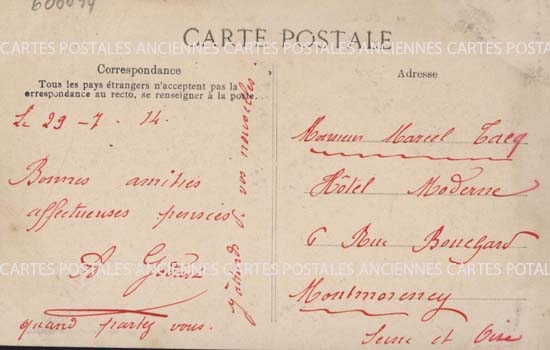 600094
CARTE POSTALE
Correspondance
Tous les pays étrangers n'acceptent pas la
correspondance au recto, se renseigner à la poste.
Le 29-7.14.
Bonnes amitiés
affectueuses pensées
A
quand partez vous.
J'attends de vos nouvelles
Adresse
Monsieur Marcel Tacq
Hôtel Moderne
6 Rue Bouchard
Montmorency
Seine et Oise
CARTES POSTALES ANCIENNES CARTES POSTALES ANCIENNES CARTES POSTALES
CARTES POSTALES ANCIENNES CARTES POSTALES ANCIENNES CARTES POSTALES